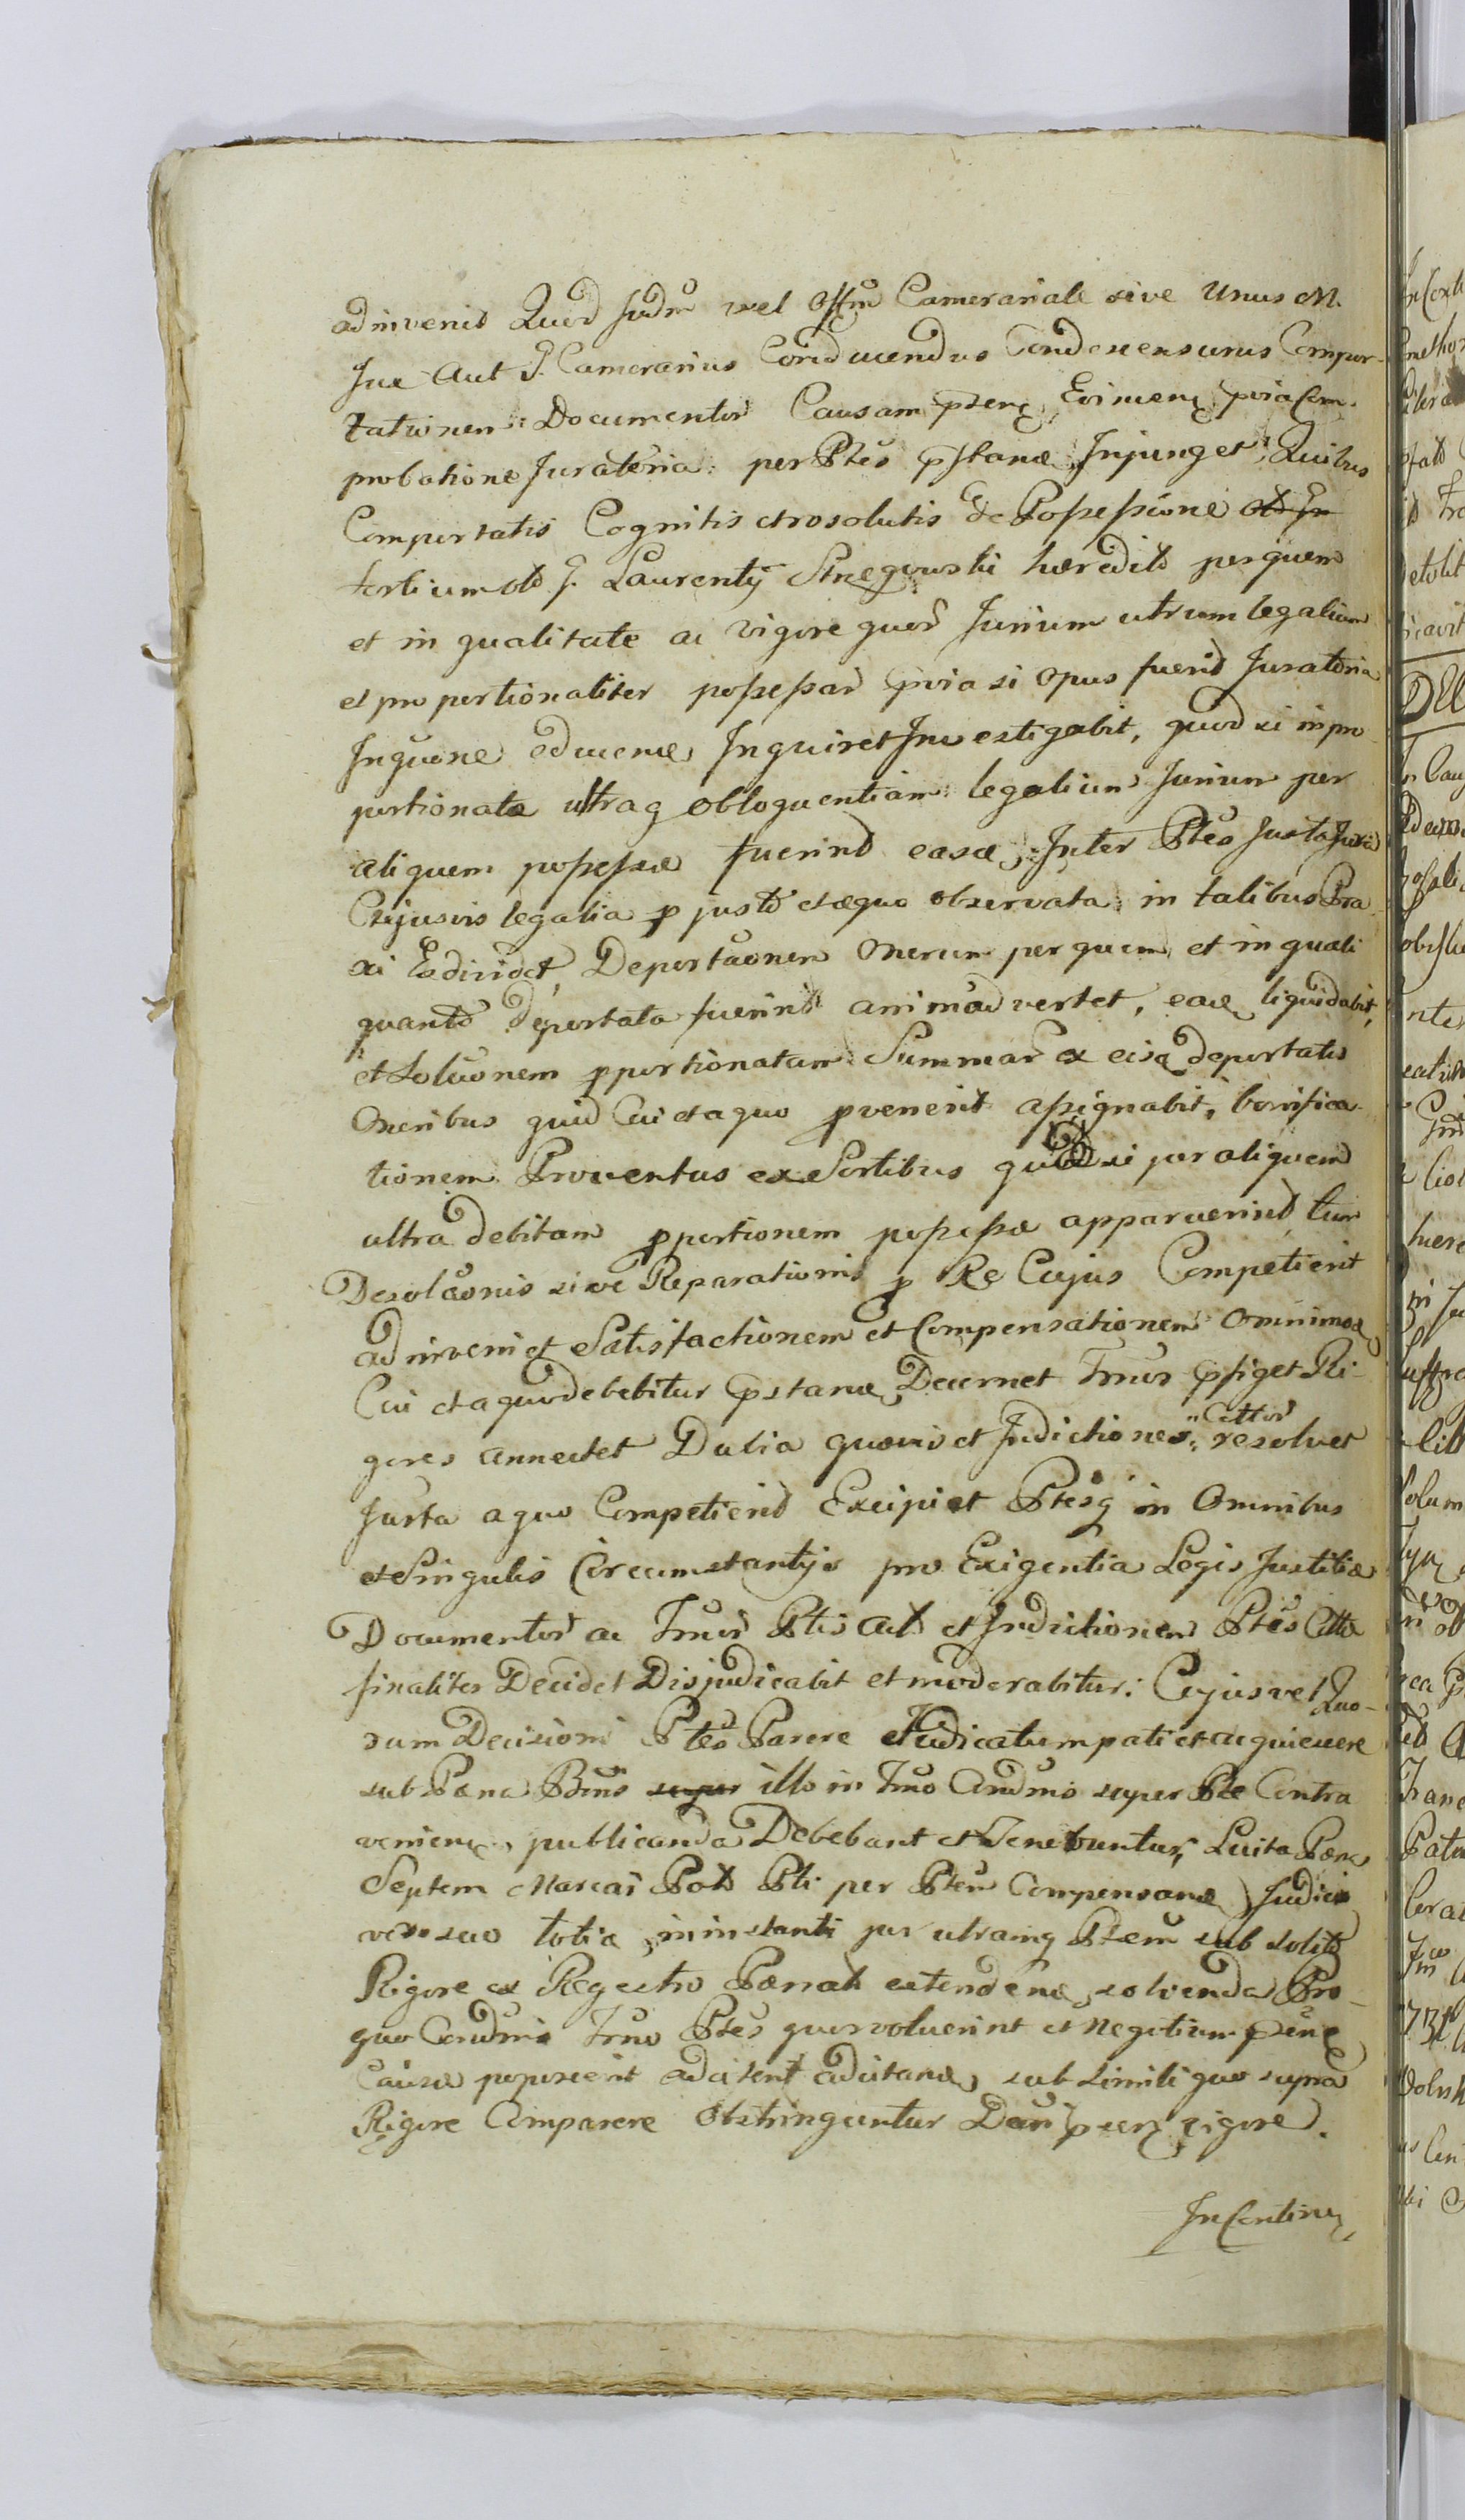 adinvenit Quod Judm vel Offm Camerariale sive Unus M.
Jux Aut G. Camerarius Conducendus Condescensurus Compor-
tationem Documentor Causam pnsenq Evincenq pvia Com-
probatione Juratoria per Ptes pstanda Injunget, Quibus
Comportatis Cognitis et resolutis de Possessione
tertium olo G. Laurentij Strzegowski hæredit per quem
et in qualitate ac vigore quor Jurium utrum legalium
et proportionaliter possessar pvia si opus fuerit Juratoria
Inquone educenda Inquiret Investigabit, quod si inpro
portionata ultraq obloquentiam legalium Jurium per
aliquem possessæ fuerint easdæ Inter Ptes Juxta Jura
Cujusvis legalia p justo et æquo observata in talibus Pra
xi Exdividet, Deportaonem Onerum per quem et in quali
quanto deportata fuerint animadvertet, eaq liquidabit,
et Soluonem pportionatam Summar ex eisq deportatis
Oneribus quid Cui et a quo pvenerit assignabit, bonifica-
tionem Proventus ex Sortibus quæ si per aliquem
ultra debitam pportionem possessæ apparuerint tum
Desolaonis sive Reparationis p Re Cujus Competierit
adinveniet Satisfactionem et Compensationem Omnimodæ
Cui et a quo debebitur pstanda Decernet Tmos pfiget Ri-
gores annectet Dubia quævis et Indictiones Cittor resolvet
Jurta a quo Competierit Excipiet Ptesq in Omnibus
et Singulis Circumstantijs pro Exigentia Legis Justitiæ
Documentor ac Jmor Ptis Act et Indictionem Ptes Cittæ
finaliter Decidet Disjudicabit et moderabitur: Cujus vel Quo-
rum Decisioni Ptes Parere et Judicatum pati et acquiescere
sub Pæna Banis super illo in Tmo Condmis super Pte Contra
veniene publicanda Debebunt et Tenebuntur, Luita Pæna
Septem Marcar Pols Pti per Ptem Compensanda Judicio
vero suo totia, in instanti per utramq Ptem sub solito
Rigore ex Regestro Pænali extendenda, solvenda Pro-
quo Condmis Tmo Ptes quas voluerint et Negotium psene
Causæ poposcerit adcitent adcitanda, sub simili quo supra
Rigore Comparere Obstringuntur Dcnri psenq vigore.
In Continenq